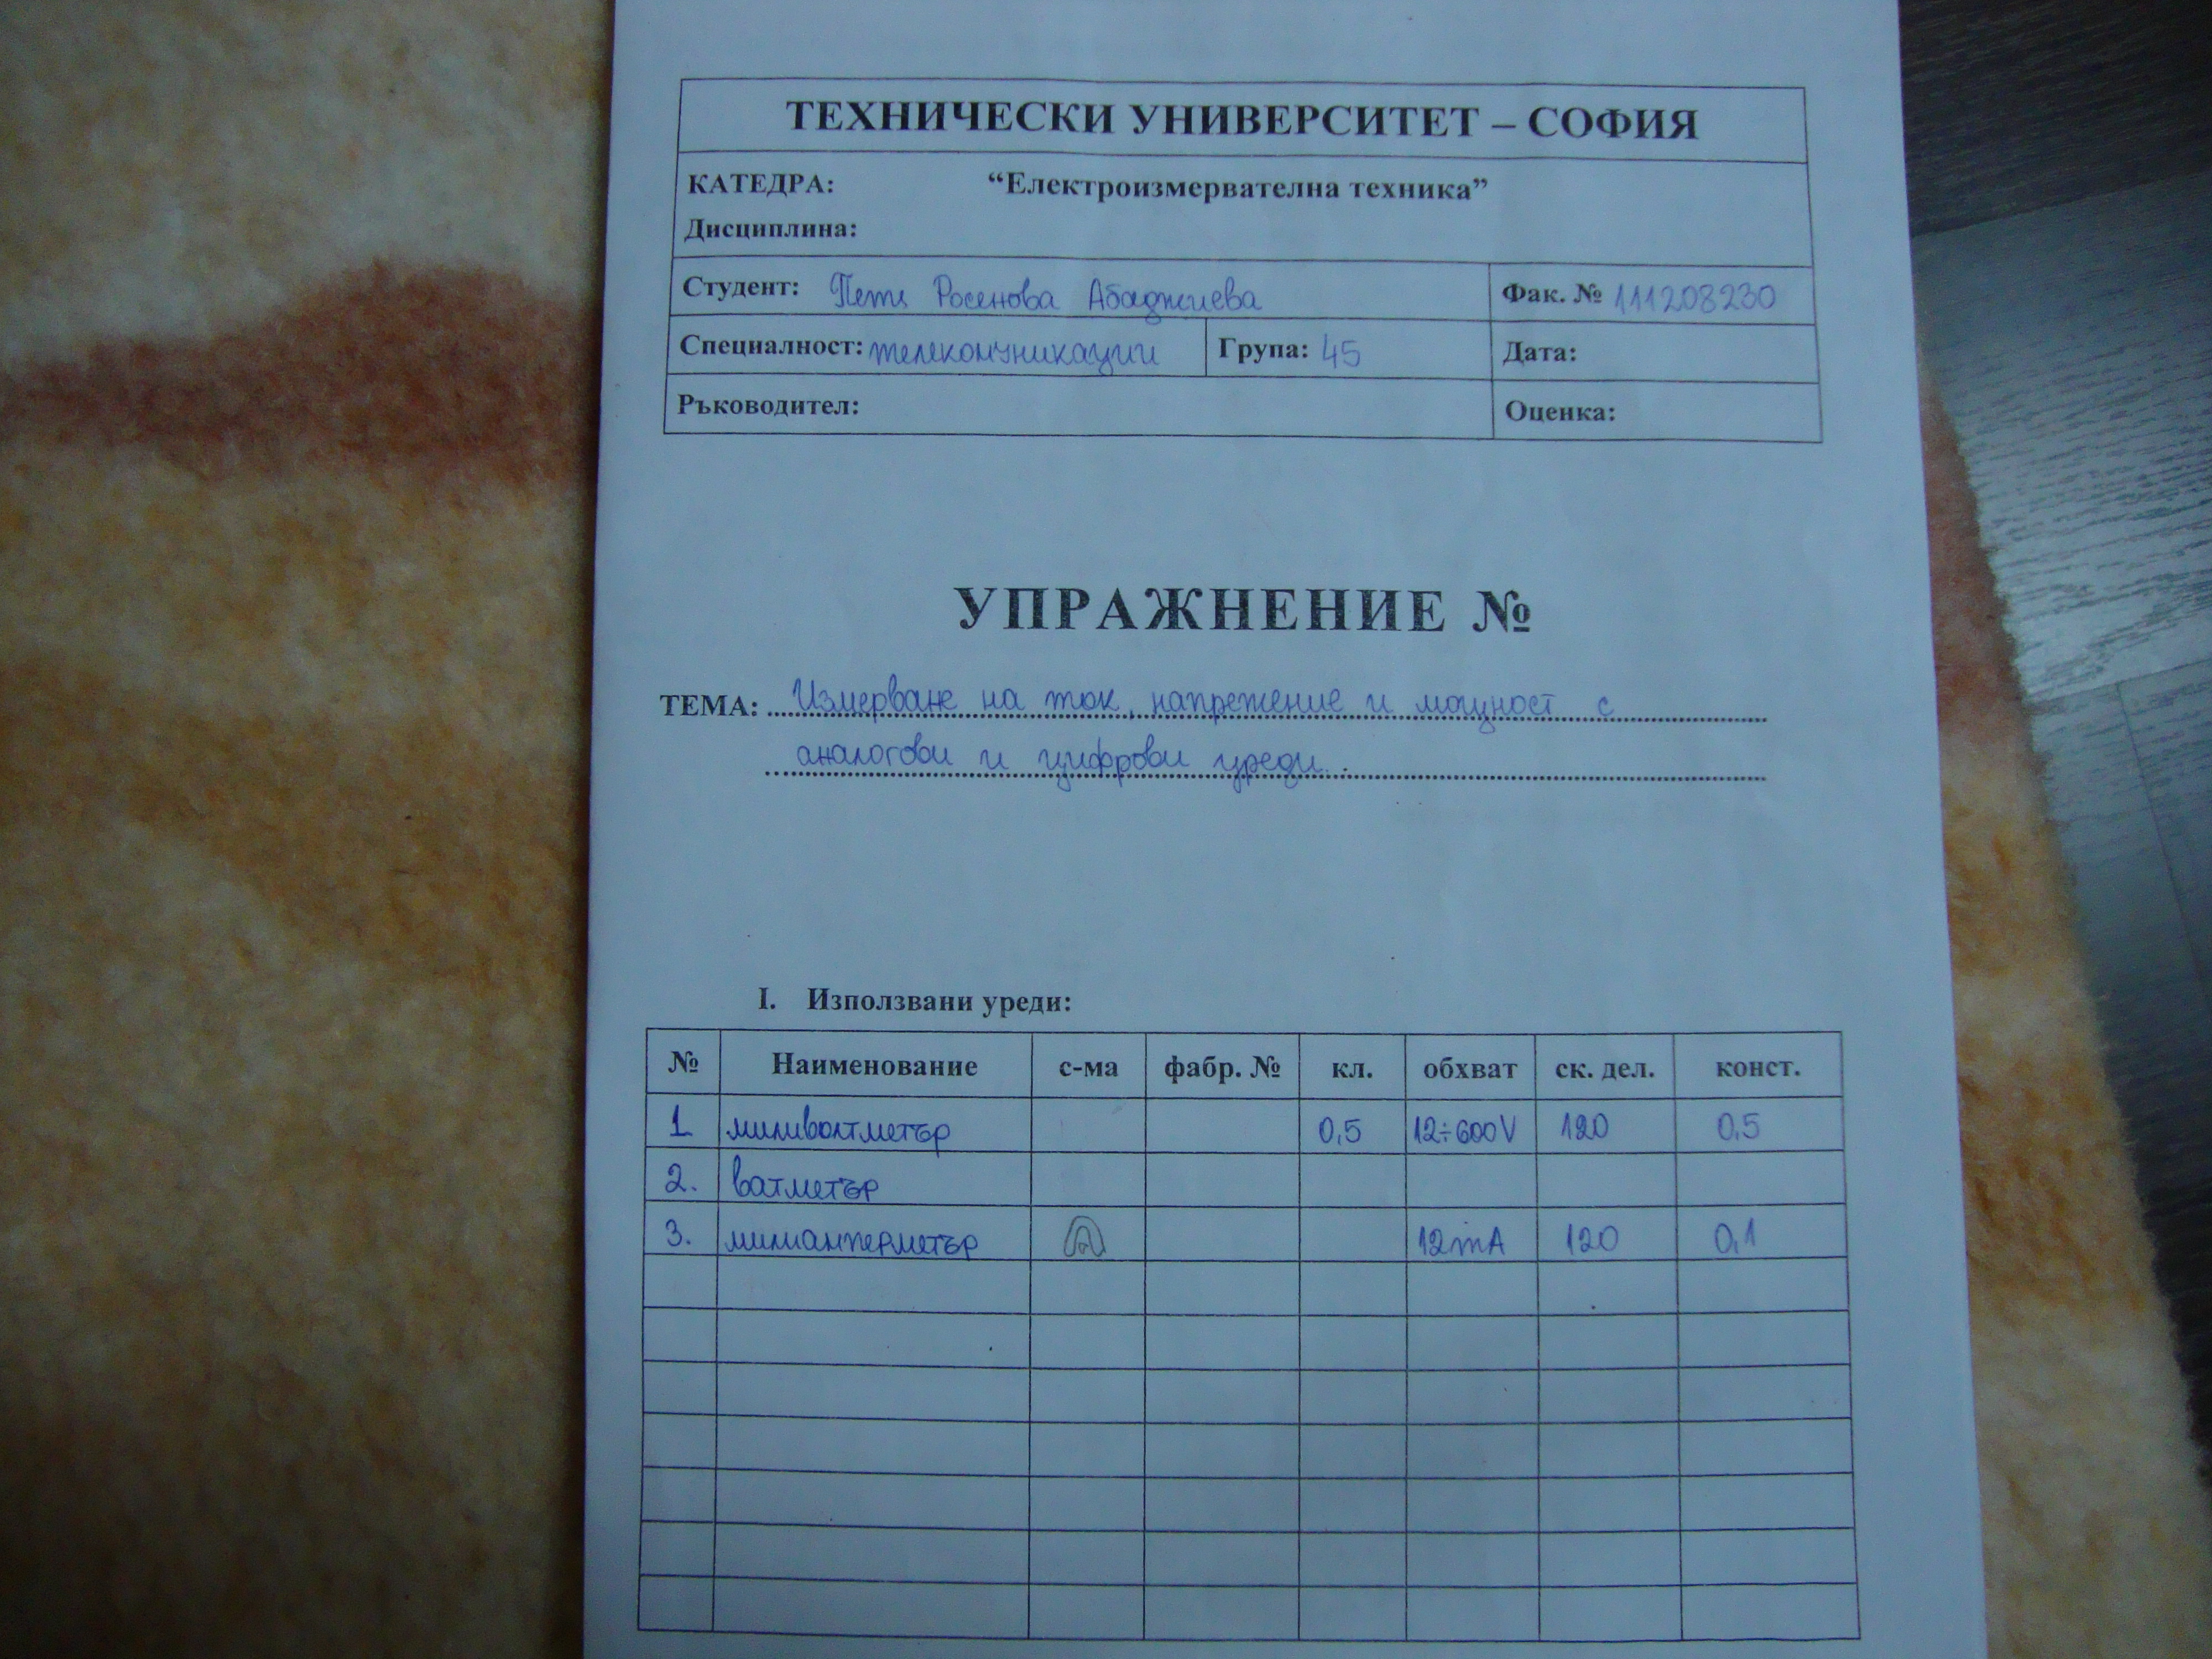 ТЕХНИЧЕСКИ УНИВЕРСИТЕТ – СОФИЯ
КАТЕДРА: “Електроизмервателна техника”
Дисциплина:
Студент: Петя Росенова Абаджиева Фак. № 111208230
Специалност: телекомуникации Група: 45 Дата:
Ръководител: Оценка:
УПРАЖНЕНИЕ №
ТЕМА: Измерване на ток, напрежение и мощност с
аналогови и цифрови уреди.
I. Използвани уреди:
№ Наименование с-ма фабр. № кл. обхват ск. дел. конст.
1 миливолтметър 0,5 12÷600V 120 0,5
2. ватметър
3. милиамперметър 12mA 120 0,1